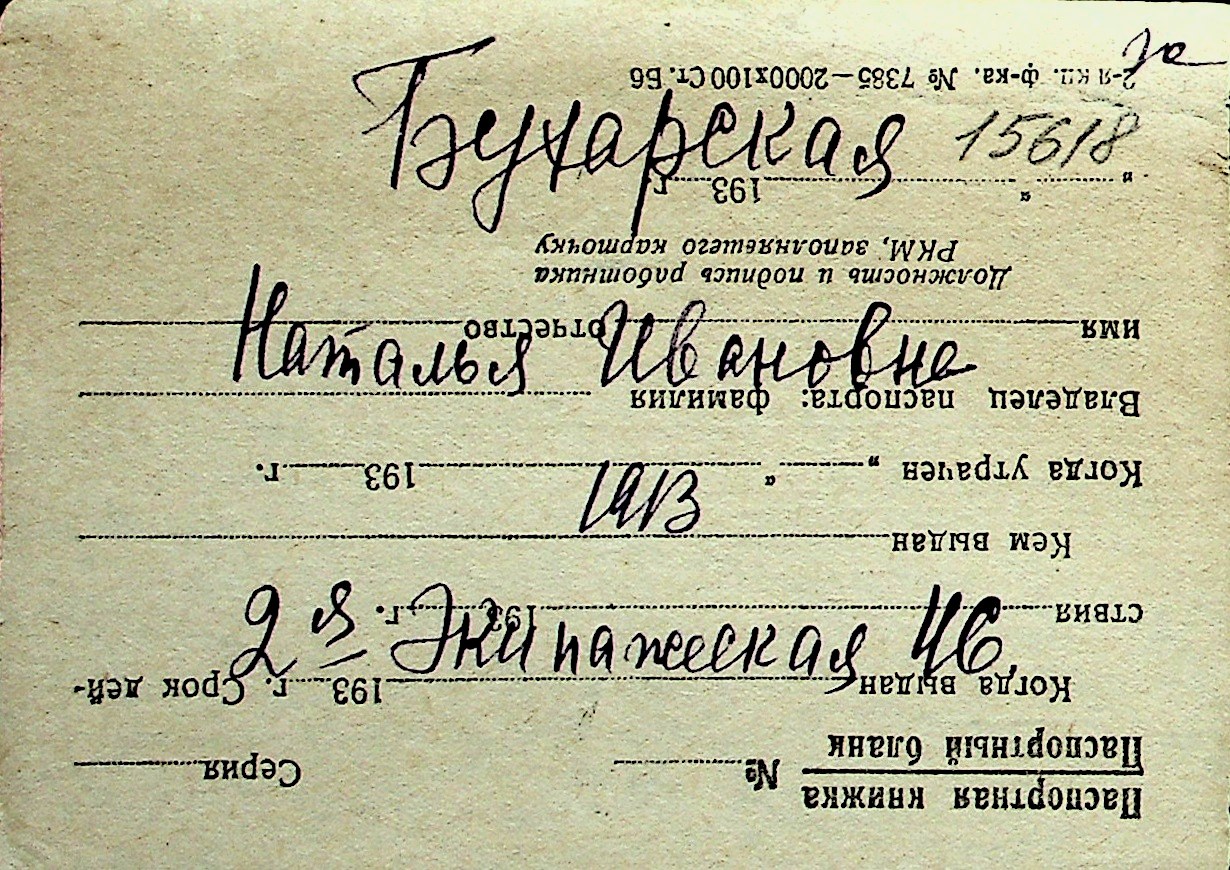 за
Бухарская 15618
Наталья Ивановна
1913
2я Экипажеская 46.
Паспортная книжка
Паспортный бланк № Серия
Когда выдан 193 г. Срок дей-
ствия 193 г.
Кем выдан
Когда утрачен „ “ 193 г.
Владелец паспорта: фамилия
имя отчество
Должность и подпись работника
РКМ, заполняешего карточку
„ “ 193 г
2-я кц. ф-ка. № 7385—2000х100 Ст. Б6